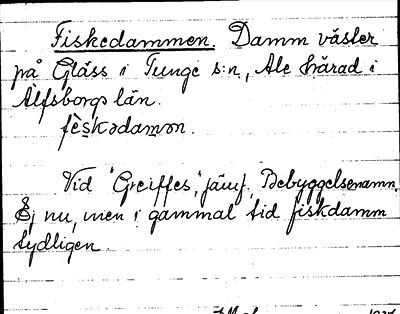 Fiskedammen. Damm väster
på Gläss i Tunge s:n, Ale härad i
Älfsborgs län.
fèskədamən.
Vid "Greiffes", jämf. Bebyggelsenamn.
Ej nu, men i gammal tid fiskdamm
tydligen.